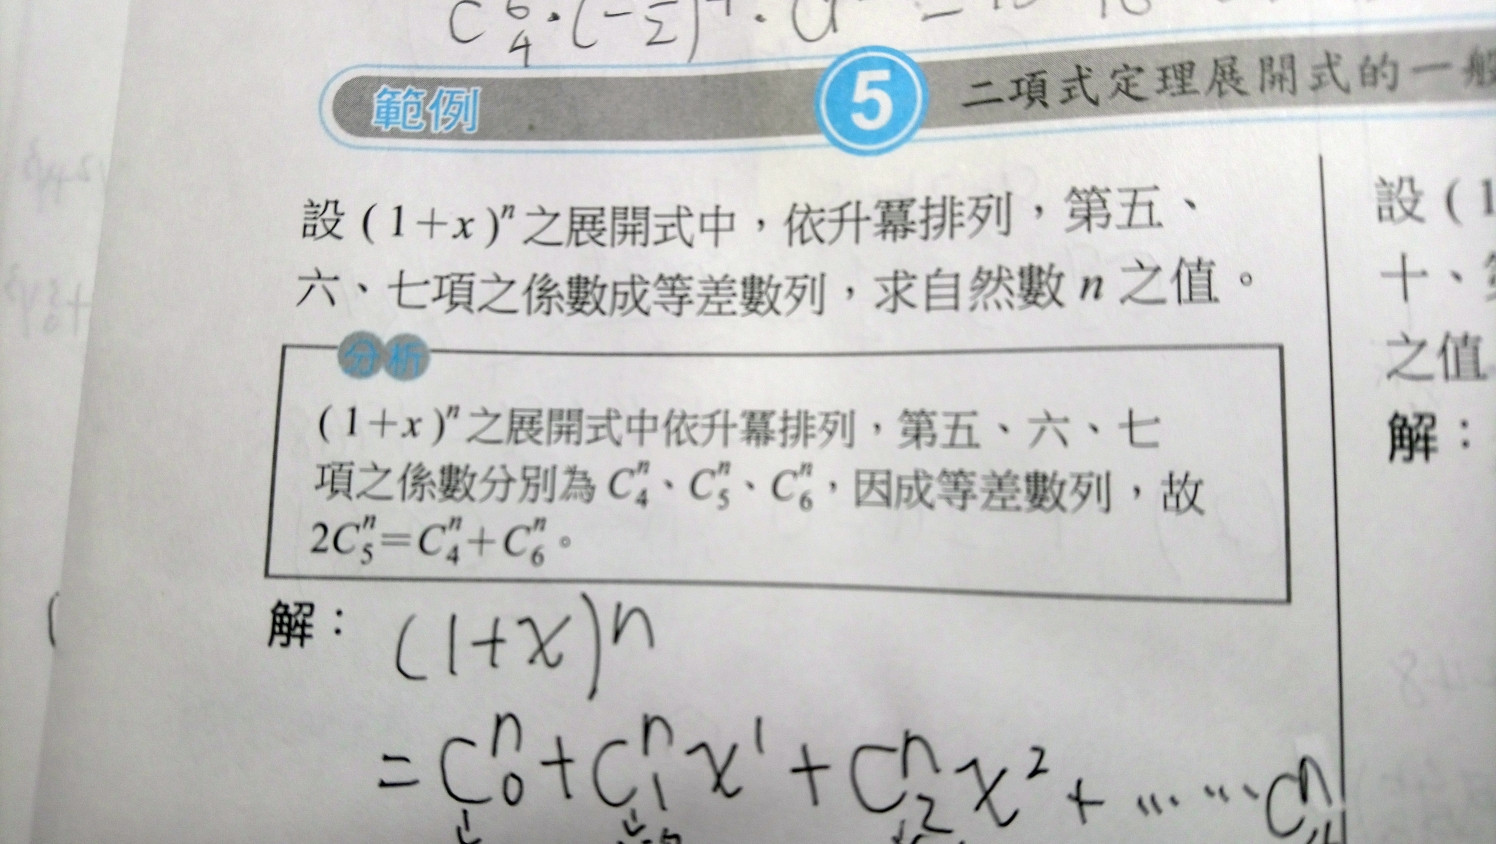 C⁶₄·(-
範例 5 二項式定理展開式的一般
設(1+x)ⁿ之展開式中，依升冪排列，第五、
六、七項之係數成等差數列，求自然數 n 之值。
分析
(1+x)ⁿ之展開式中依升冪排列，第五、六、七
項之係數分別為 Cⁿ₄、Cⁿ₅、Cⁿ₆，因成等差數列，故
2Cⁿ₅=Cⁿ₄+Cⁿ₆。
解： (1+x)ⁿ
= Cⁿ₀ + Cⁿ₁ x¹ + Cⁿ₂ x² + ...... Cⁿ
設(1
十、
之值
解：